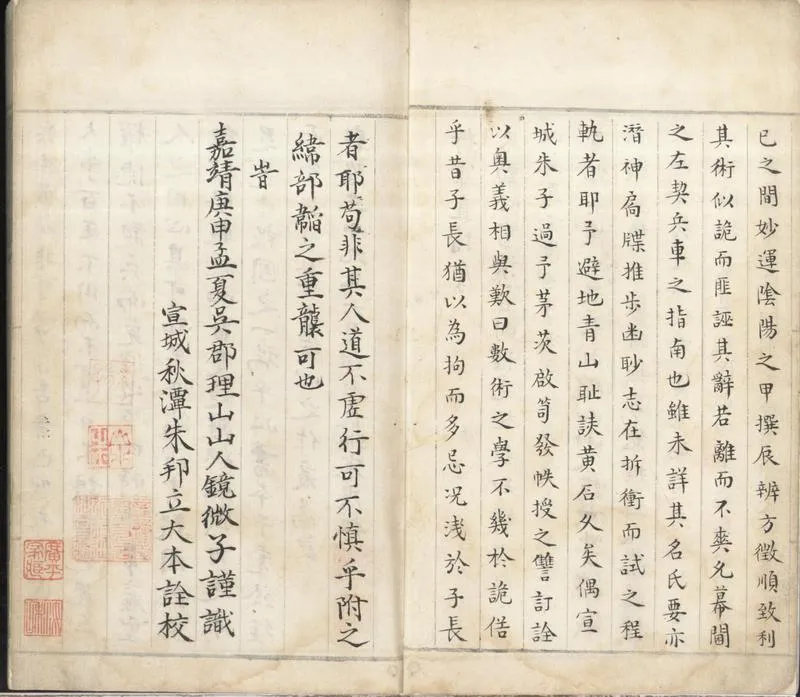 已之間妙運陰陽之甲撰辰辨方徵順致利
其術似詭而匪誣其辭若離而不爽允幕間
之左契兵車之指南也雖未詳其名氏要亦
潛神扄牒推步幽眇志在拆衝而試之程
軌者耶予避地青山耻談黄石久矣偶宣
城朱子過予茅茨啟笥發帙授之讐訂詮
以奥義相與歎曰數術之學不幾於詭
乎昔子長猶以為拘而多忌况淺於子長
者耶苟非其人道不虚行可不慎乎附之
緯部韜之重襲可也
旹
嘉靖庚申孟夏吳郡理山山人鏡微子謹識
宣城秋潭朱邦立大本詮校